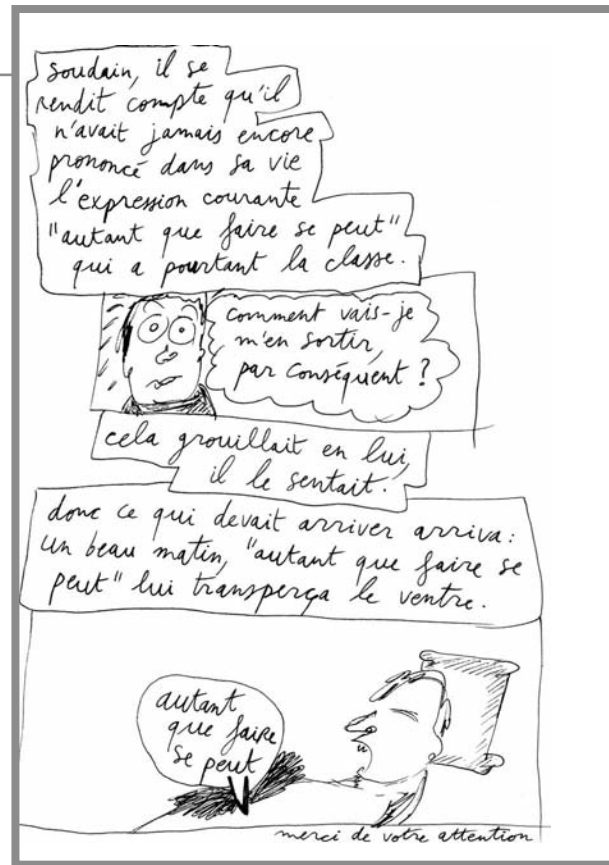 soudain, il se
rendit compte qu'il
n'avait jamais encore
prononcé dans sa vie
l'expression courante
"autant que faire se peut"
qui a pourtant la classe.
comment vais-je
m'en sortir,
par conséquent ?
cela grouillait en lui,
il le sentait.
donc ce qui devait arriver arriva :
un beau matin, "autant que faire se
peut" lui transperça le ventre.
autant
que faire
se peut
merci de votre attention